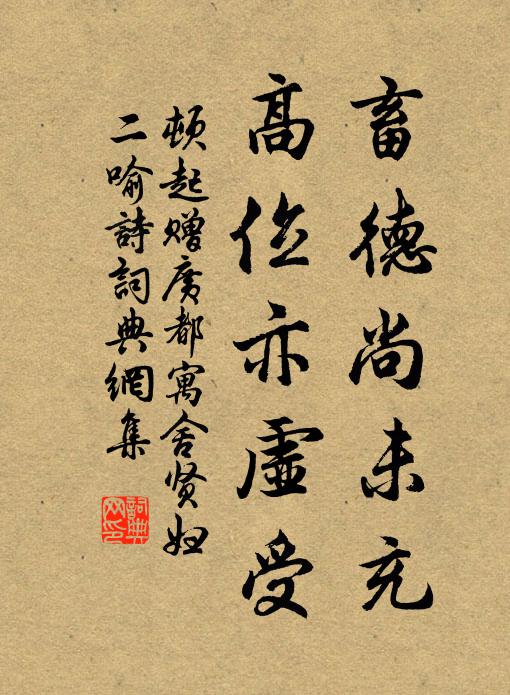 畜德尚未充
高位亦虛受
顿起赠廣都寓舍贤妇
二喻詩詞典網集
詞典网印